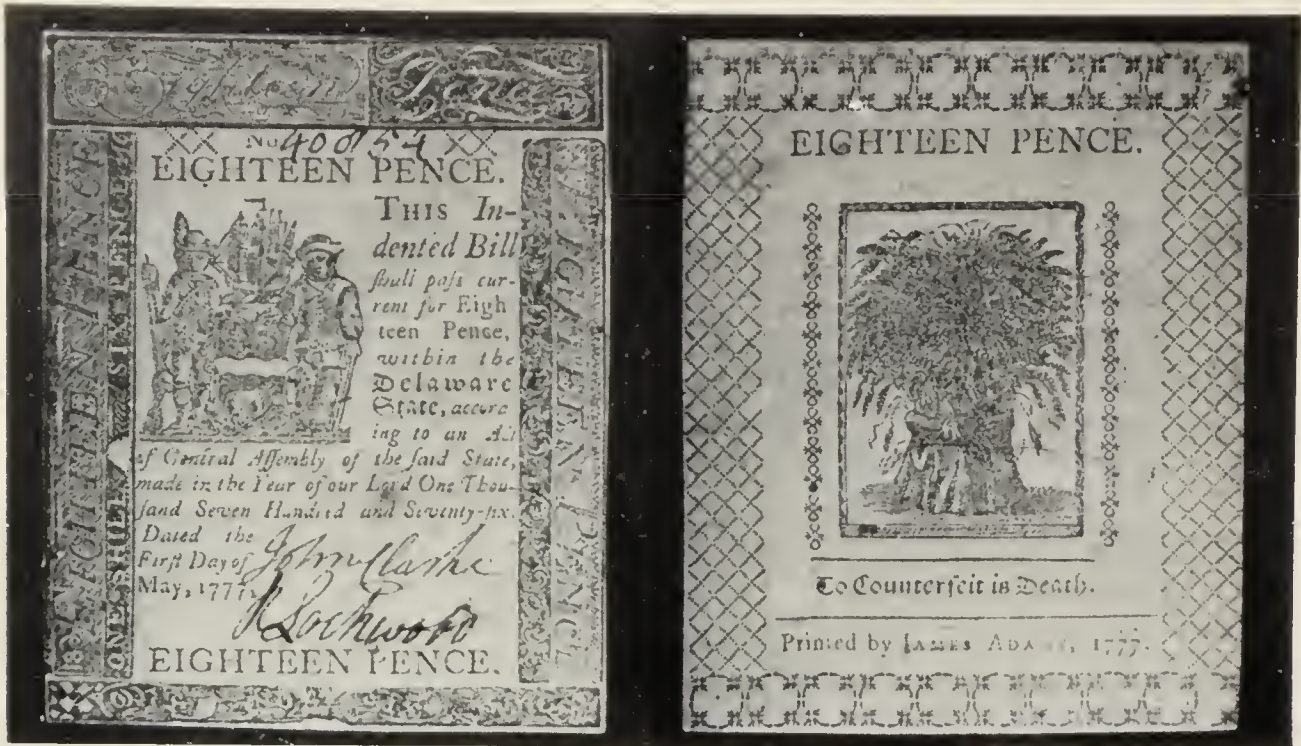 Eighteen Pence
No 40854
EIGHTEEN PENCE.
THIS In-
dented Bill
ſhall paſs cur-
rent for Eigh
teen Pence,
within the
Delaware
State, accord
ing to an Act
of General Aſſembly of the ſaid State,
made in the Year of our Lord One Thou-
ſand Seven Hundred and Seventy-ſix.
Dated the
Firſt Day of
May, 1777.
John Clarke
Lockwood
EIGHTEEN PENCE.
EIGHTEEN PENCE
ONE SHILL. and SIX PENCE
EIGHTEEN PENCE
EIGHTEEN PENCE.
To Counterfeit is Death.
Printed by JAMES ADAMS, 1777.